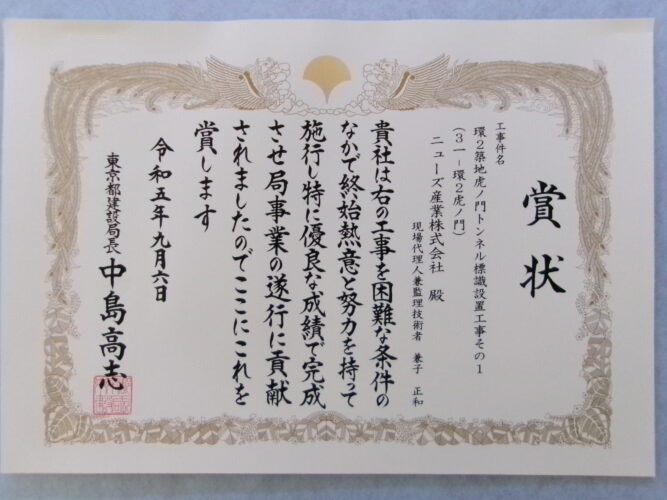 賞状
工事件名
環2築地虎ノ門トンネル標識設置工事その1
(31-環2虎ノ門)
ニューズ産業株式会社 殿
現場代理人兼監理技術者 兼子 正和
貴社は右の工事を困難な条件の
なかで終始熱意と努力を持って
施行し特に優良な成績で完成
させ局事業の遂行に貢献
されましたのでここにこれを
賞します
令和五年九月六日
東京都建設局長 中島高志